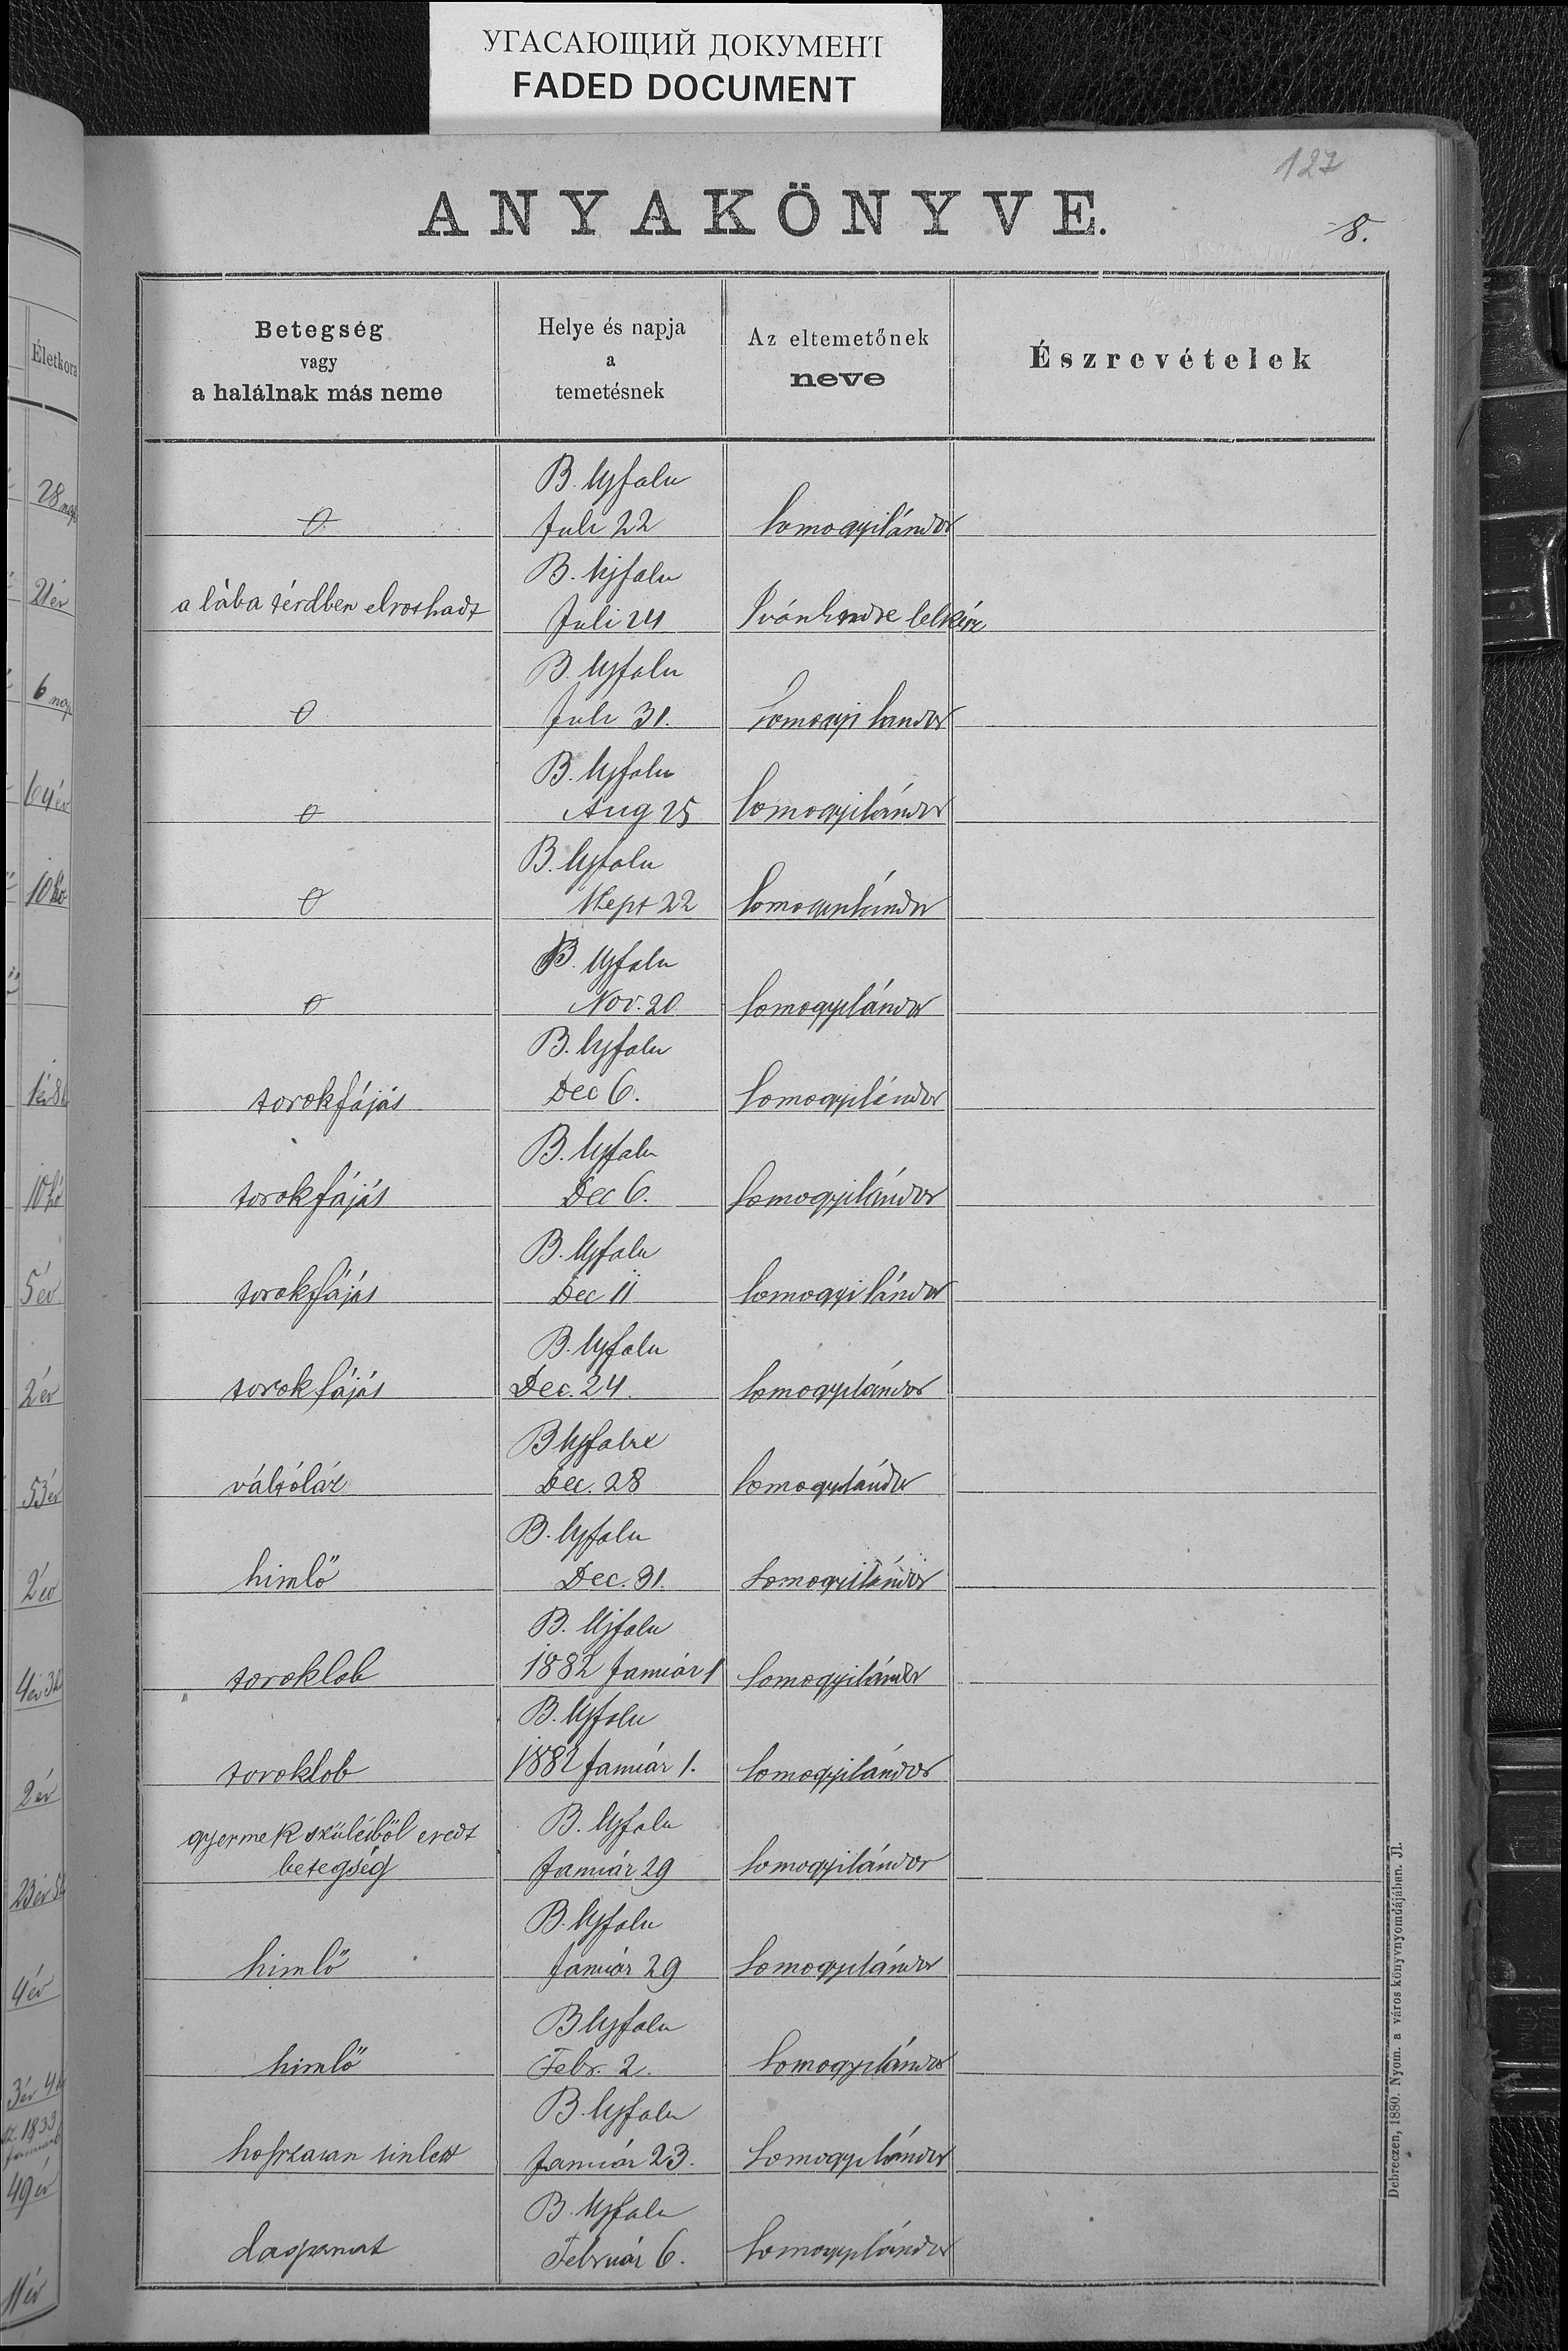 УГАСАЮЩИЙ ДОКУМЕНТ
FADED DOCUMENT
127
ANYAKÖNYVE.
8.
Életkora
Betegség
vagy
a halálnak más neme
Helye és napja
a
temetésnek
Az eltemetőnek
neve
Észrevételek
28 nap
B. Ujfalu
0 Juli 22 Somogyi Sándor
21 év
B. Ujfalu
a lába térdben elroshadt Juli 24 Iván Endre lelkész
6 nap
B. Ujfalu
0 Juli 31. Somogyi Sandor
64 év
B. Ujfalu
0 Aug 25 Somogyi Sándor
10 hó
B. Ujfalu
0 Sept 22 Somogyi Sándor
B. Ujfalu
0 Nov. 20 Somogyi Sándor
B. Ujfalu
torokfájás Dec 6. Somogyi Sándor
10 hó
B. Ujfalu
torokfájás Dec 6. Somogyi Sándor
5 év
B. Ujfalu
torokfájás Dec 11 Somogyi Sándor
2 év
B. Ujfalu
torokfájás Dec. 24. Somogyi Sándor
53 év
B Ujfalu
váltóláz Dec. 28 Somogyi Sándor
2 év
B. Ujfalu
himlő Dec. 31. Somogyi Sándor
4 év 3 h
B. Ujfalu
toroklob 1882 Január 1 Somogyi Sándor
2 év
B. Ujfalu
toroklob 1882 Január 1. Somogyi Sándor
23 év
gyermek szüléiből eredt B. Ujfalu
betegség Január 29 Somogyi Sándor
4 év
B. Ujfalu
himlő Január 29 Somogyi Sándor
3 év 4 h
B Ujfalu
himlő Febr. 2. Somogyi Sándor
sz. 1833
49 év
B. Ujfalu
Január 23. Somogyi Sándor
11 év
B. Ujfalu
daganat Február 6. Somogyi Sándor
Debreczen, 1880. Nyom. a város könyvnyomdájában. Jl.